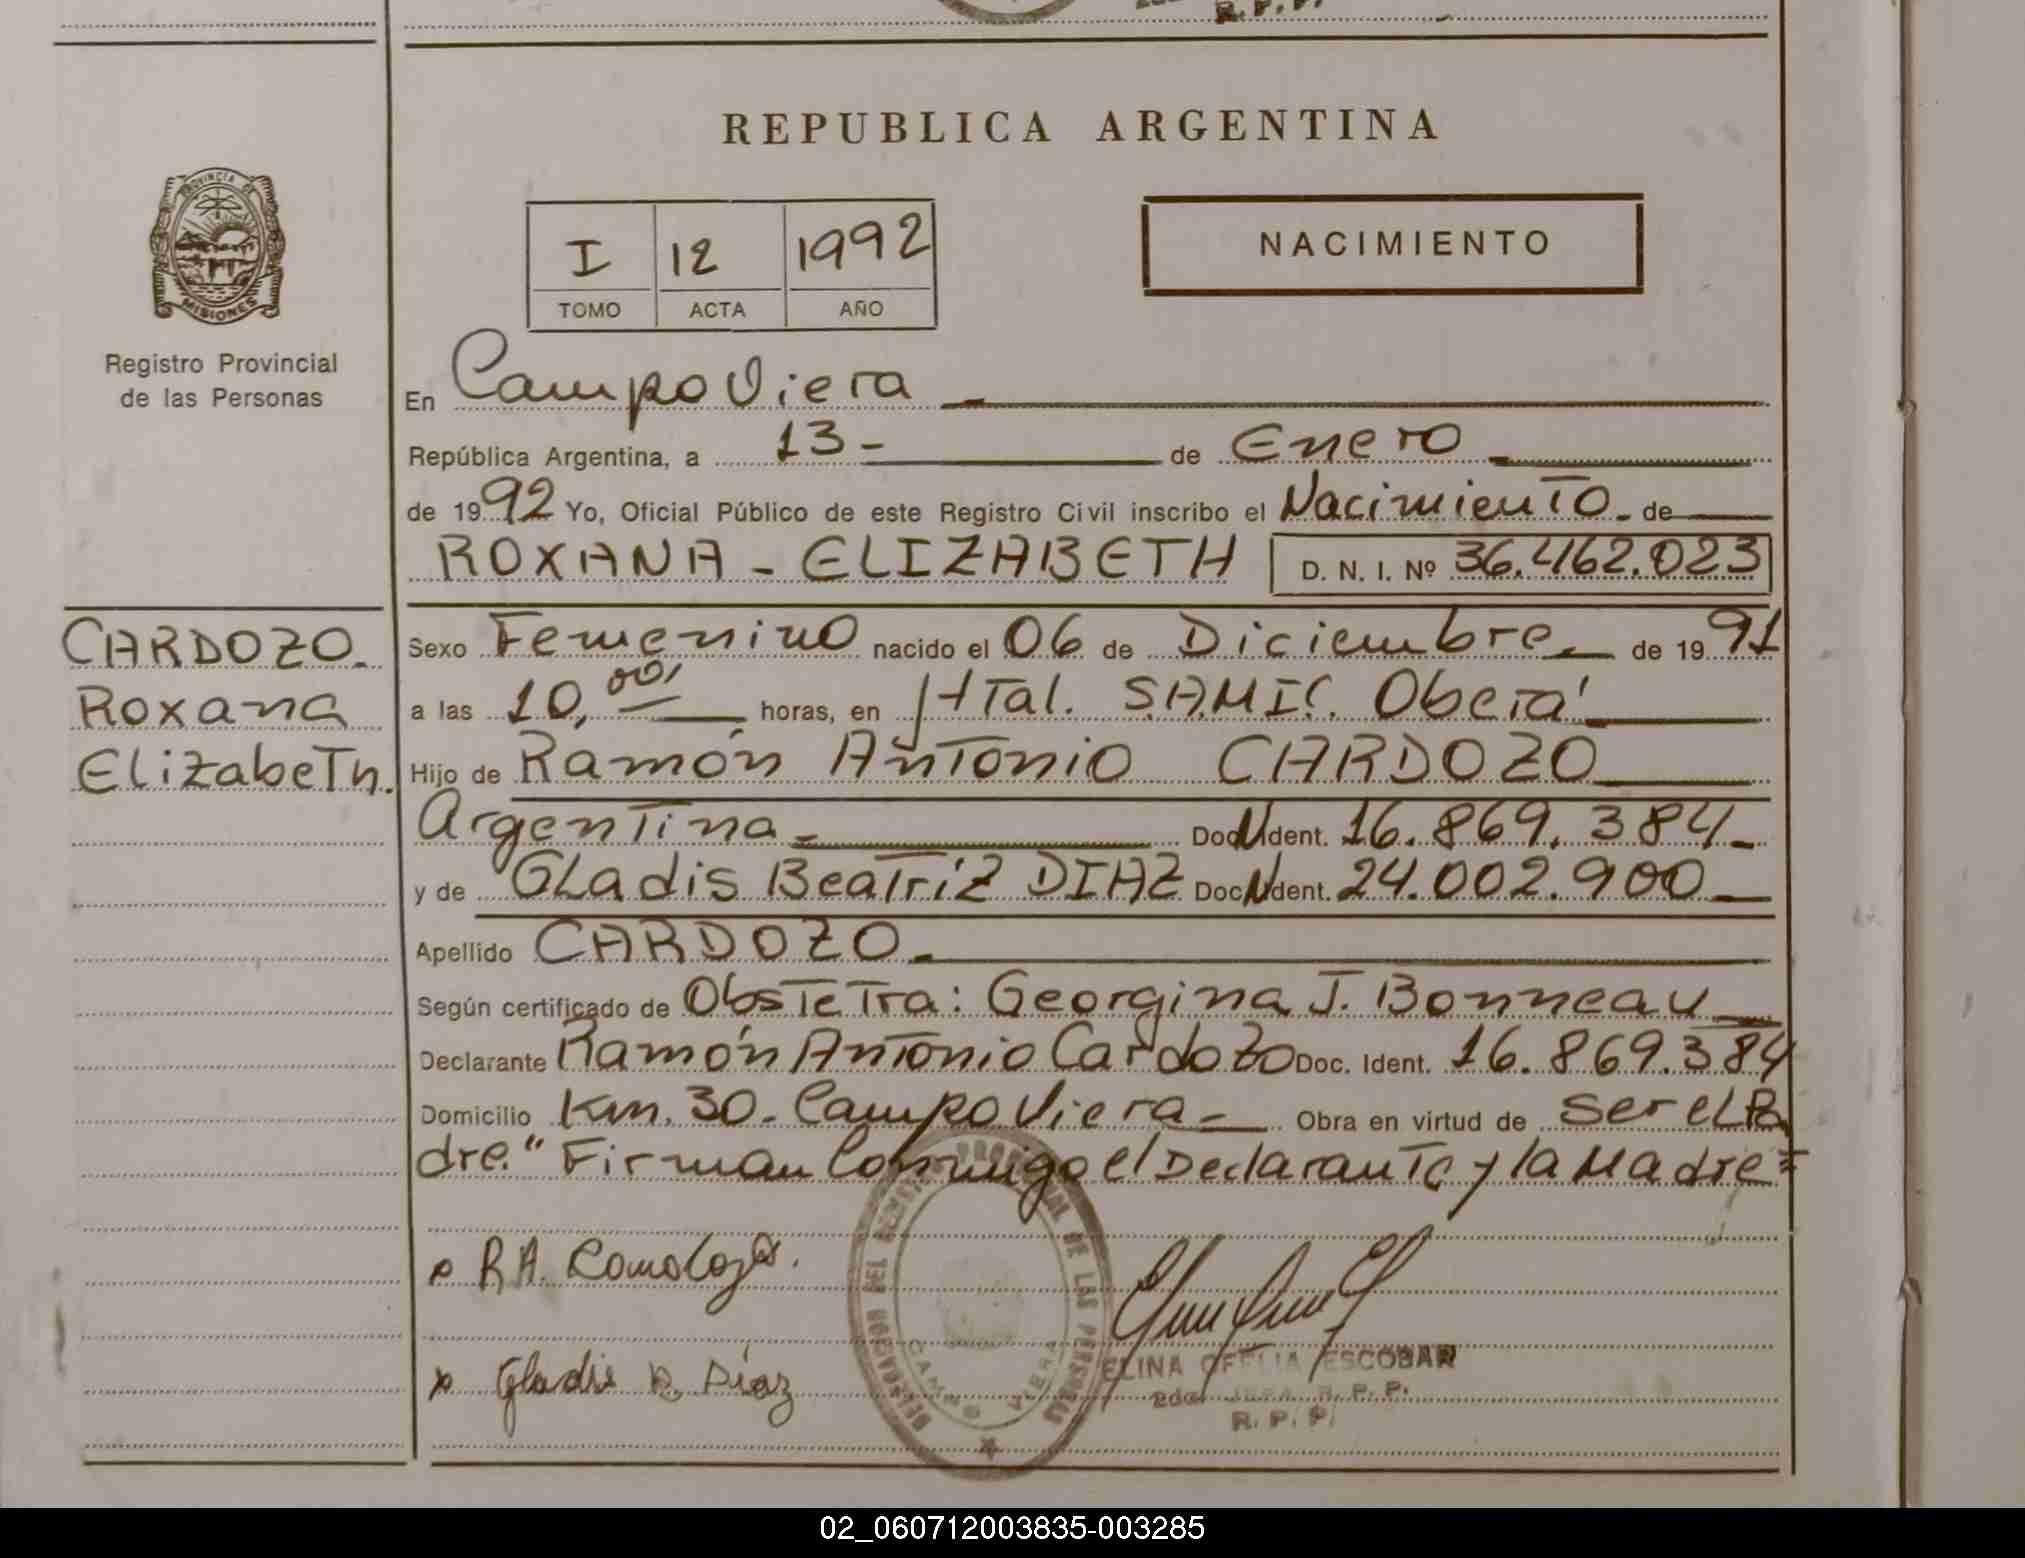 R.P.P.
REPUBLICA ARGENTINA
PROVINCIA DE
MISIONES
Registro Provincial
de las Personas
I 12 1992
TOMO ACTA AÑO
NACIMIENTO
En Campo Viera
República Argentina, a 13 - de Enero
de 1992 Yo, Oficial Público de este Registro Civil inscribo el Nacimiento - de
ROXANA - ELIZABETH D. N. I. Nº 36.462.023
CARDOZO.
Roxana
Elizabeth.
Sexo Femenino nacido el 06 de Diciembre de 1991
a las 10,00 horas, en Htal. S.A.M.I.C. Oberá
Hijo de Ramón Antonio CARDOZO
Argentina - Doc. Ident. 16.869.384 -
y de GLadis Beatríz DIAZ Doc. Ident. 24.002.900
Apellido CARDOZO
Según certificado de Obstetra: Georgina J. Bonneau
Declarante Ramón Antonio Cardozo Doc. Ident. 16.869.384
Domicilio Km. 30 - Campo Viera - Obra en virtud de ser el Pa
dre." Firman Conmigo el Declarante y la Madre =
DELEGACION DEL REGISTRO PROVINCIAL DE LAS PERSONAS
CAMPO VIERA
x R A.
x Gladis B. Díaz
ELINA OFELIA ESCOBAR
2da. JEFA R. P. P.
R. P. P.
02_060712003835-003285